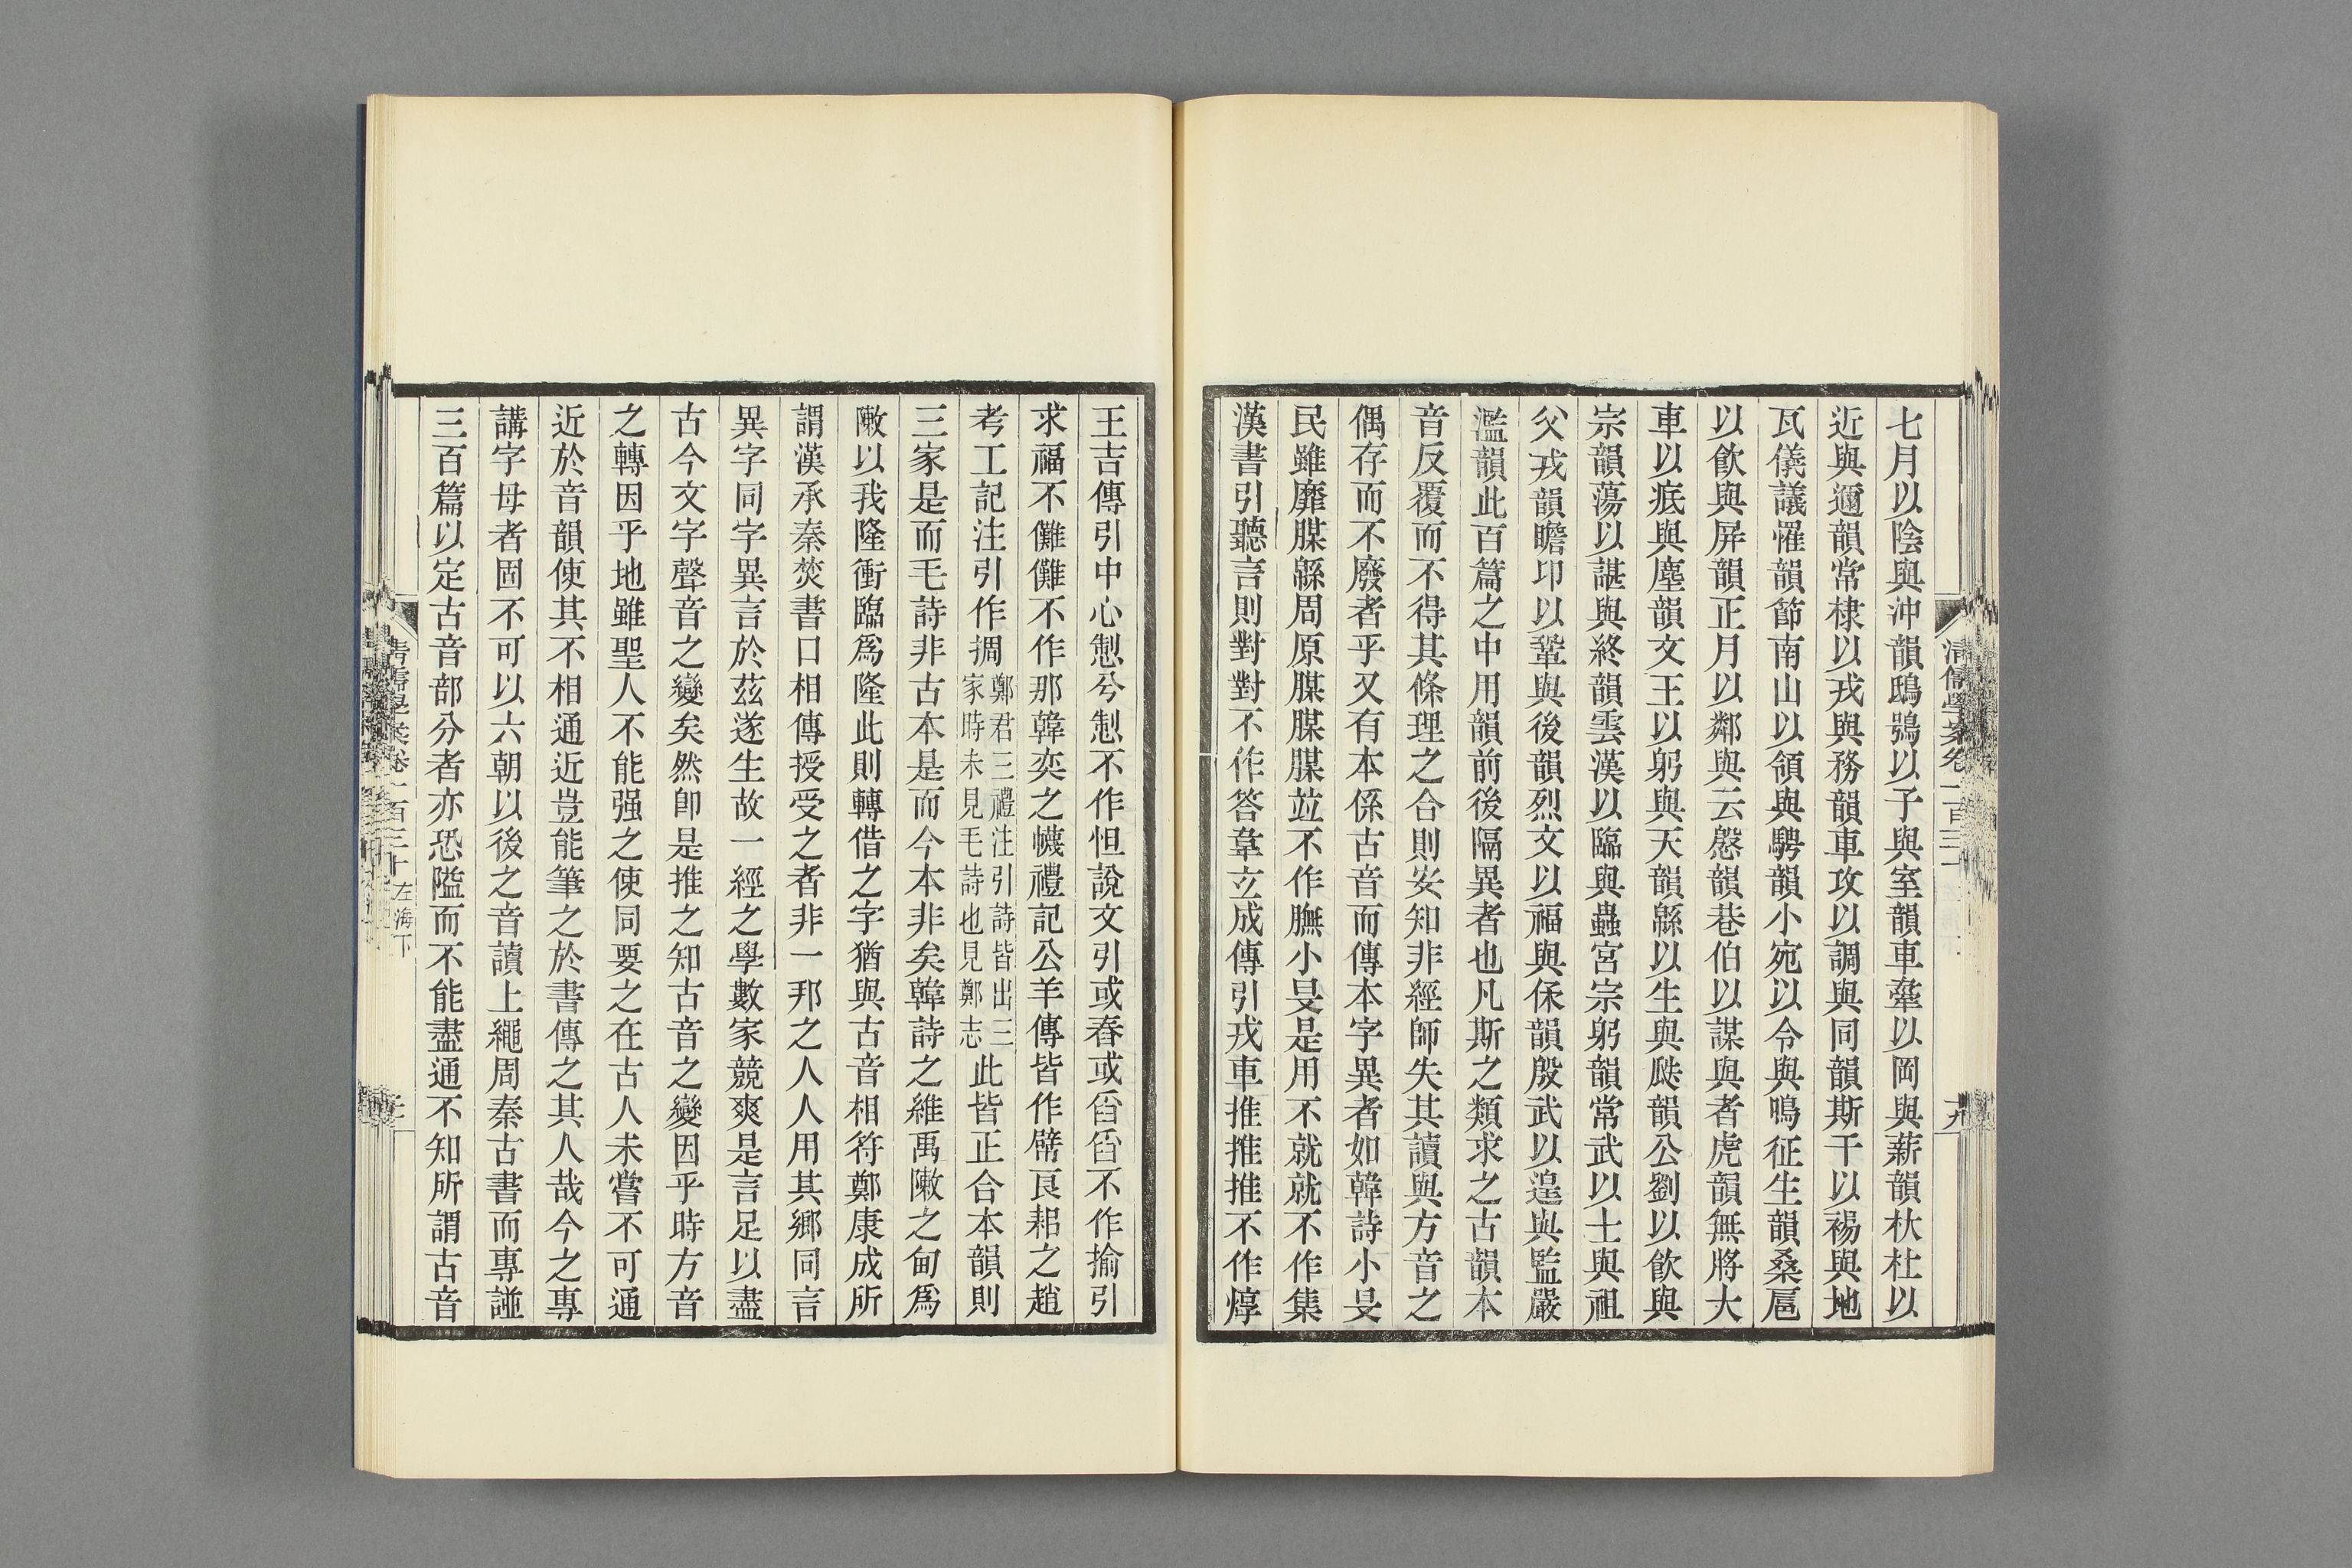 七月以陰與沖韻鴟鴞以子與室韻車舝以岡與薪韻杕杜以
近與邇韻常棣以戎與務韻車攻以調與同韻斯干以裼與地
瓦儀議罹韻節南山以領與騁韻小宛以令與鳴征生韻桑扈
以飲與屏韻正月以鄰與云慇韻巷伯以謀與者虎韻無將大
車以疷與塵韻文王以躬與天韻緜以生與瓞韻公劉以飲與
宗韻蕩以諶與終韻雲漢以臨與蟲宮宗躬韻常武以士與祖
父戎韻瞻卬以鞏與後韻烈文以福與保韻殷武以遑與監嚴
濫韻此百篇之中用韻前後隔異者也凡斯之類求之古韻本
音反覆而不得其條理之合則安知非經師失其讀與方音之
偶存而不廢者乎又有本係古音而傳本字異者如韓詩小旻
民雖靡腜緜周原腜腜腜竝不作膴小旻是用不就就不作集
漢書引聽言則對對不作答韋玄成傳引戎車推推推不作焞
王吉傳引中心懰兮懰不作怛說文引或舂或舀舀不作揄引
求福不儺儺不作那韓奕之幭禮記公羊傳皆作幦良耜之趙
考工記注引作捌鄭君三禮注引詩皆出三家時未見毛詩也見鄭志此皆正合本韻則
三家是而毛詩非古本是而今本非矣韓詩之維禹敶之甸爲
敶以我隆衝臨爲隆此則轉借之字猶與古音相符鄭康成所
謂漢承秦焚書口相傳授受之者非一邦之人人用其鄉同言
異字同字異言於茲遂生故一經之學數家競爽是言足以盡
古今文字聲音之變矣然卽是推之知古音之變因乎時方音
之轉因乎地雖聖人不能强之使同要之在古人未嘗不可通
近於音韻使其不相通近豈能筆之於書傳之其人哉今之專
講字母者固不可以六朝以後之音讀上繩周秦古書而專諩
三百篇以定古音部分者亦恐隘而不能盡通不知所謂古音
清儒學案卷一百三十
左海下